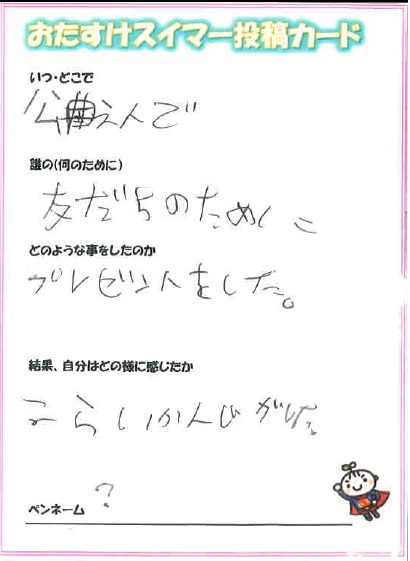 おたすけスイマー投稿カード
いつ・どこで
公えんで
誰の(何のために)
友だちのために
どのような事をしたのか
プレゼントをした。
結果、自分はどの様に感じたか
らしいかんじがした。
ペンネーム
?